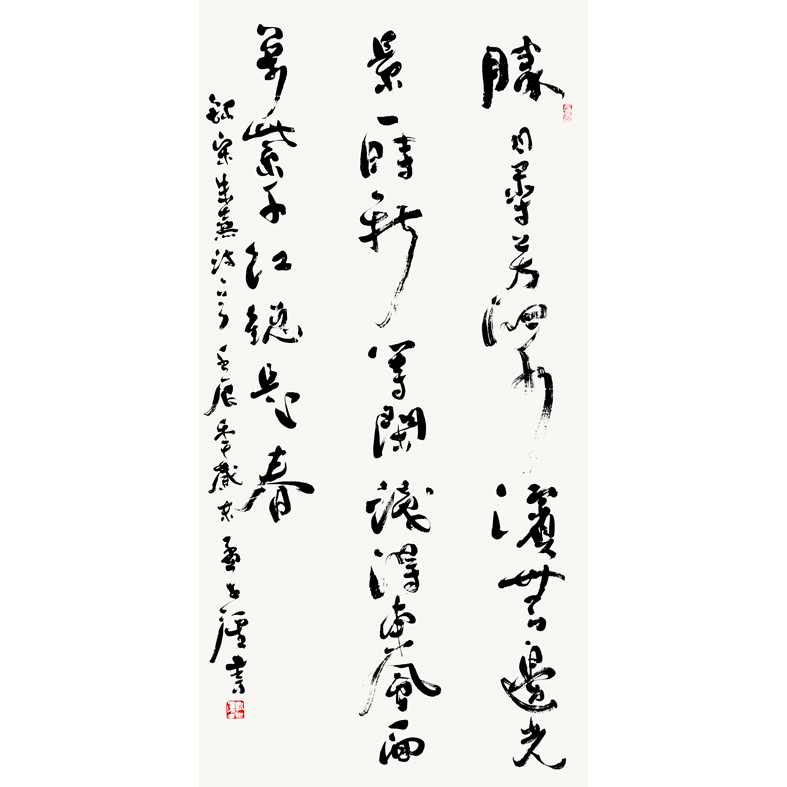 勝日尋芳泗水濱無邊光
景一時新等閑識得東風面
萬紫千紅總是春
錄宋朱熹詩一首 壬辰年歲末 孟 書